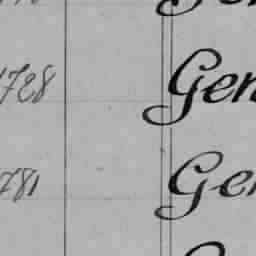 1728 Gen
781 Gen